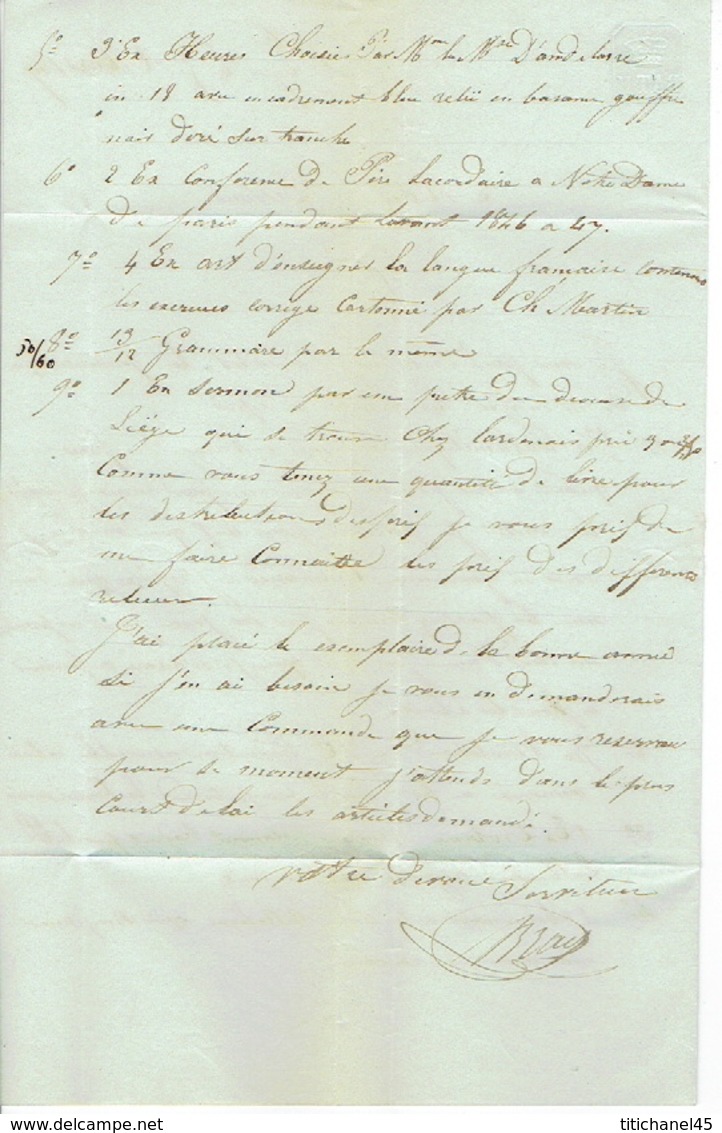 5º 3 Ex Heures Choisie Par Mme la Mise D'andelarre
in 18 avec encadrement bleu relié en basane gauffré
noir doré sur tranche
6º 2 Ex Conference du Père Lacordaire a Notre Dame
De paris pendant lavant 1846 a 47.
7º 4 Ex art d'enseigner la langue francaise contenant
les exercices corrigé Cartonné par Ch Martin
50/60 8º 13/12 Grammaire par le même
9º 1 Ex Sermon par un prêtre du diocese de
Liége qui se trouve Chez Lardinois prix 3
Comme vous tenez une quantité de livre pour
les distributions des prix je vous pris de
me faire Connaitre les prix des differents
relieur.
J'ai placé le exemplaire de la bonne année
Si j'en ai besoin je vous en demanderais
avec une Commande que je vous reserve
pour se moment j'attends dans le plus
Court delai les articles demandé.
votre devoué Serviteur
titichanel45